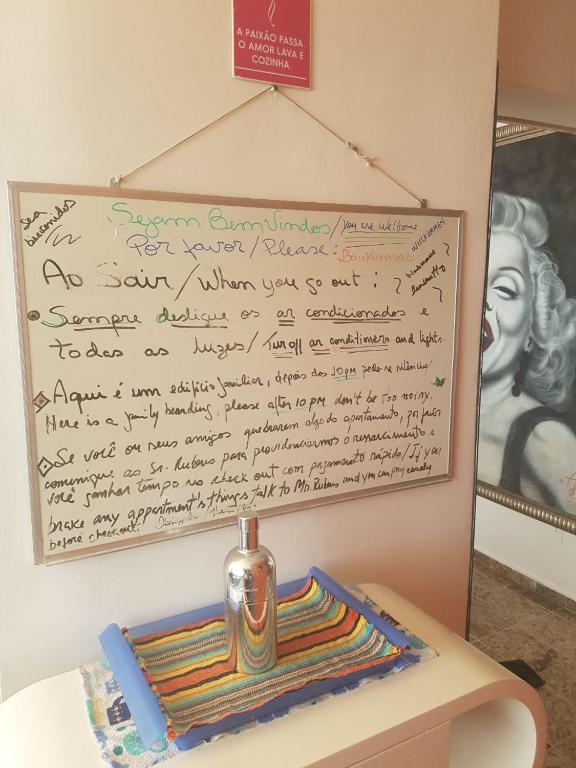 A PAIXÃO PASSA.
O AMOR LAVA E
COZINHA.
Sea
bienvenidos
Sejam Bem Vindos / You are Wellcome
Por favor / Please:
Ao Sair / When you go out :
Sempre desligue os ar condicionados e
todas as luzes / Turn off air conditioners and lights.
Aqui é um edifício familiar, depois das 10 pm pede-se silêncio /
Here is a family boarding, please after 10 pm don't be too noisy.
Se você ou seus amigos quebrarem algo do apartamento, por favor
comunique ao Sr. Rubens para providenciarmos o ressarcimento e
você ganhar tempo no check out com pagamento rápido / If you
brake any appartment's things talk to Mr. Rubens and you can pay
before checkout.